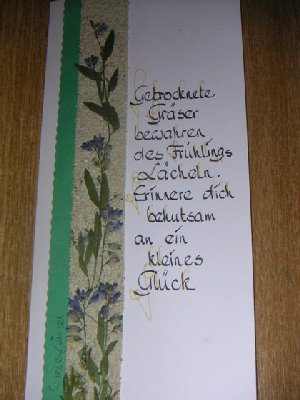 Getrocknete
Gräser
bewahren
des Frühlings
Lächeln.
Erinnere dich
behutsam
an ein
kleines
Glück